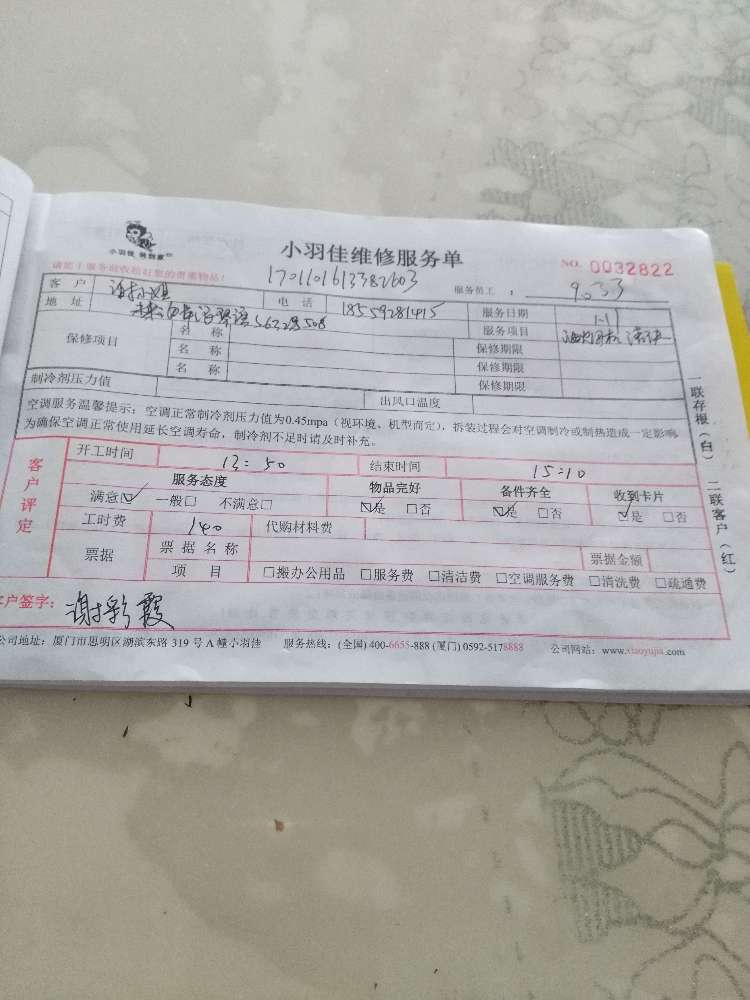 小羽佳 特别惠
小羽佳维修服务单
NO. 0032822
请您于服务前收拾好您的贵重物品!
1701101613382603
服务员工: 9033
客户 谢小姐 电话 18559281415 服务日期 1.11
地址 服务项目
保修项目 名称 保修期限
名称 保修期限
名称 保修期限
制冷剂压力值 出风口温度
空调服务温馨提示:空调正常制冷剂压力值为0.45mpa(视环境、机型而定),拆装过程会对空调制冷或制热造成一定影响
为确保空调正常使用延长空调寿命,制冷剂不足时请及时补充。
客户评定
开工时间 13:50 结束时间 15:10
服务态度 物品完好 备件齐全 收到卡片
满意☑ 一般□ 不满意□ ☑是 □否 ☑是 □否 ☑是 □否
工时费 140 代购材料费
票据 票据名称 票据金额
项目 □搬办公用品 □服务费 □清洁费 □空调服务费 □清洗费 □疏通费
客户签字: 谢彩霞
公司地址:厦门市思明区湖滨东路 319 号 A 幢小羽佳 服务热线:(全国) 400-6655-888 (厦门) 0592-5178888 公司网站:www.xiaoyujia.com
一联存根(白) 二联客户(红)